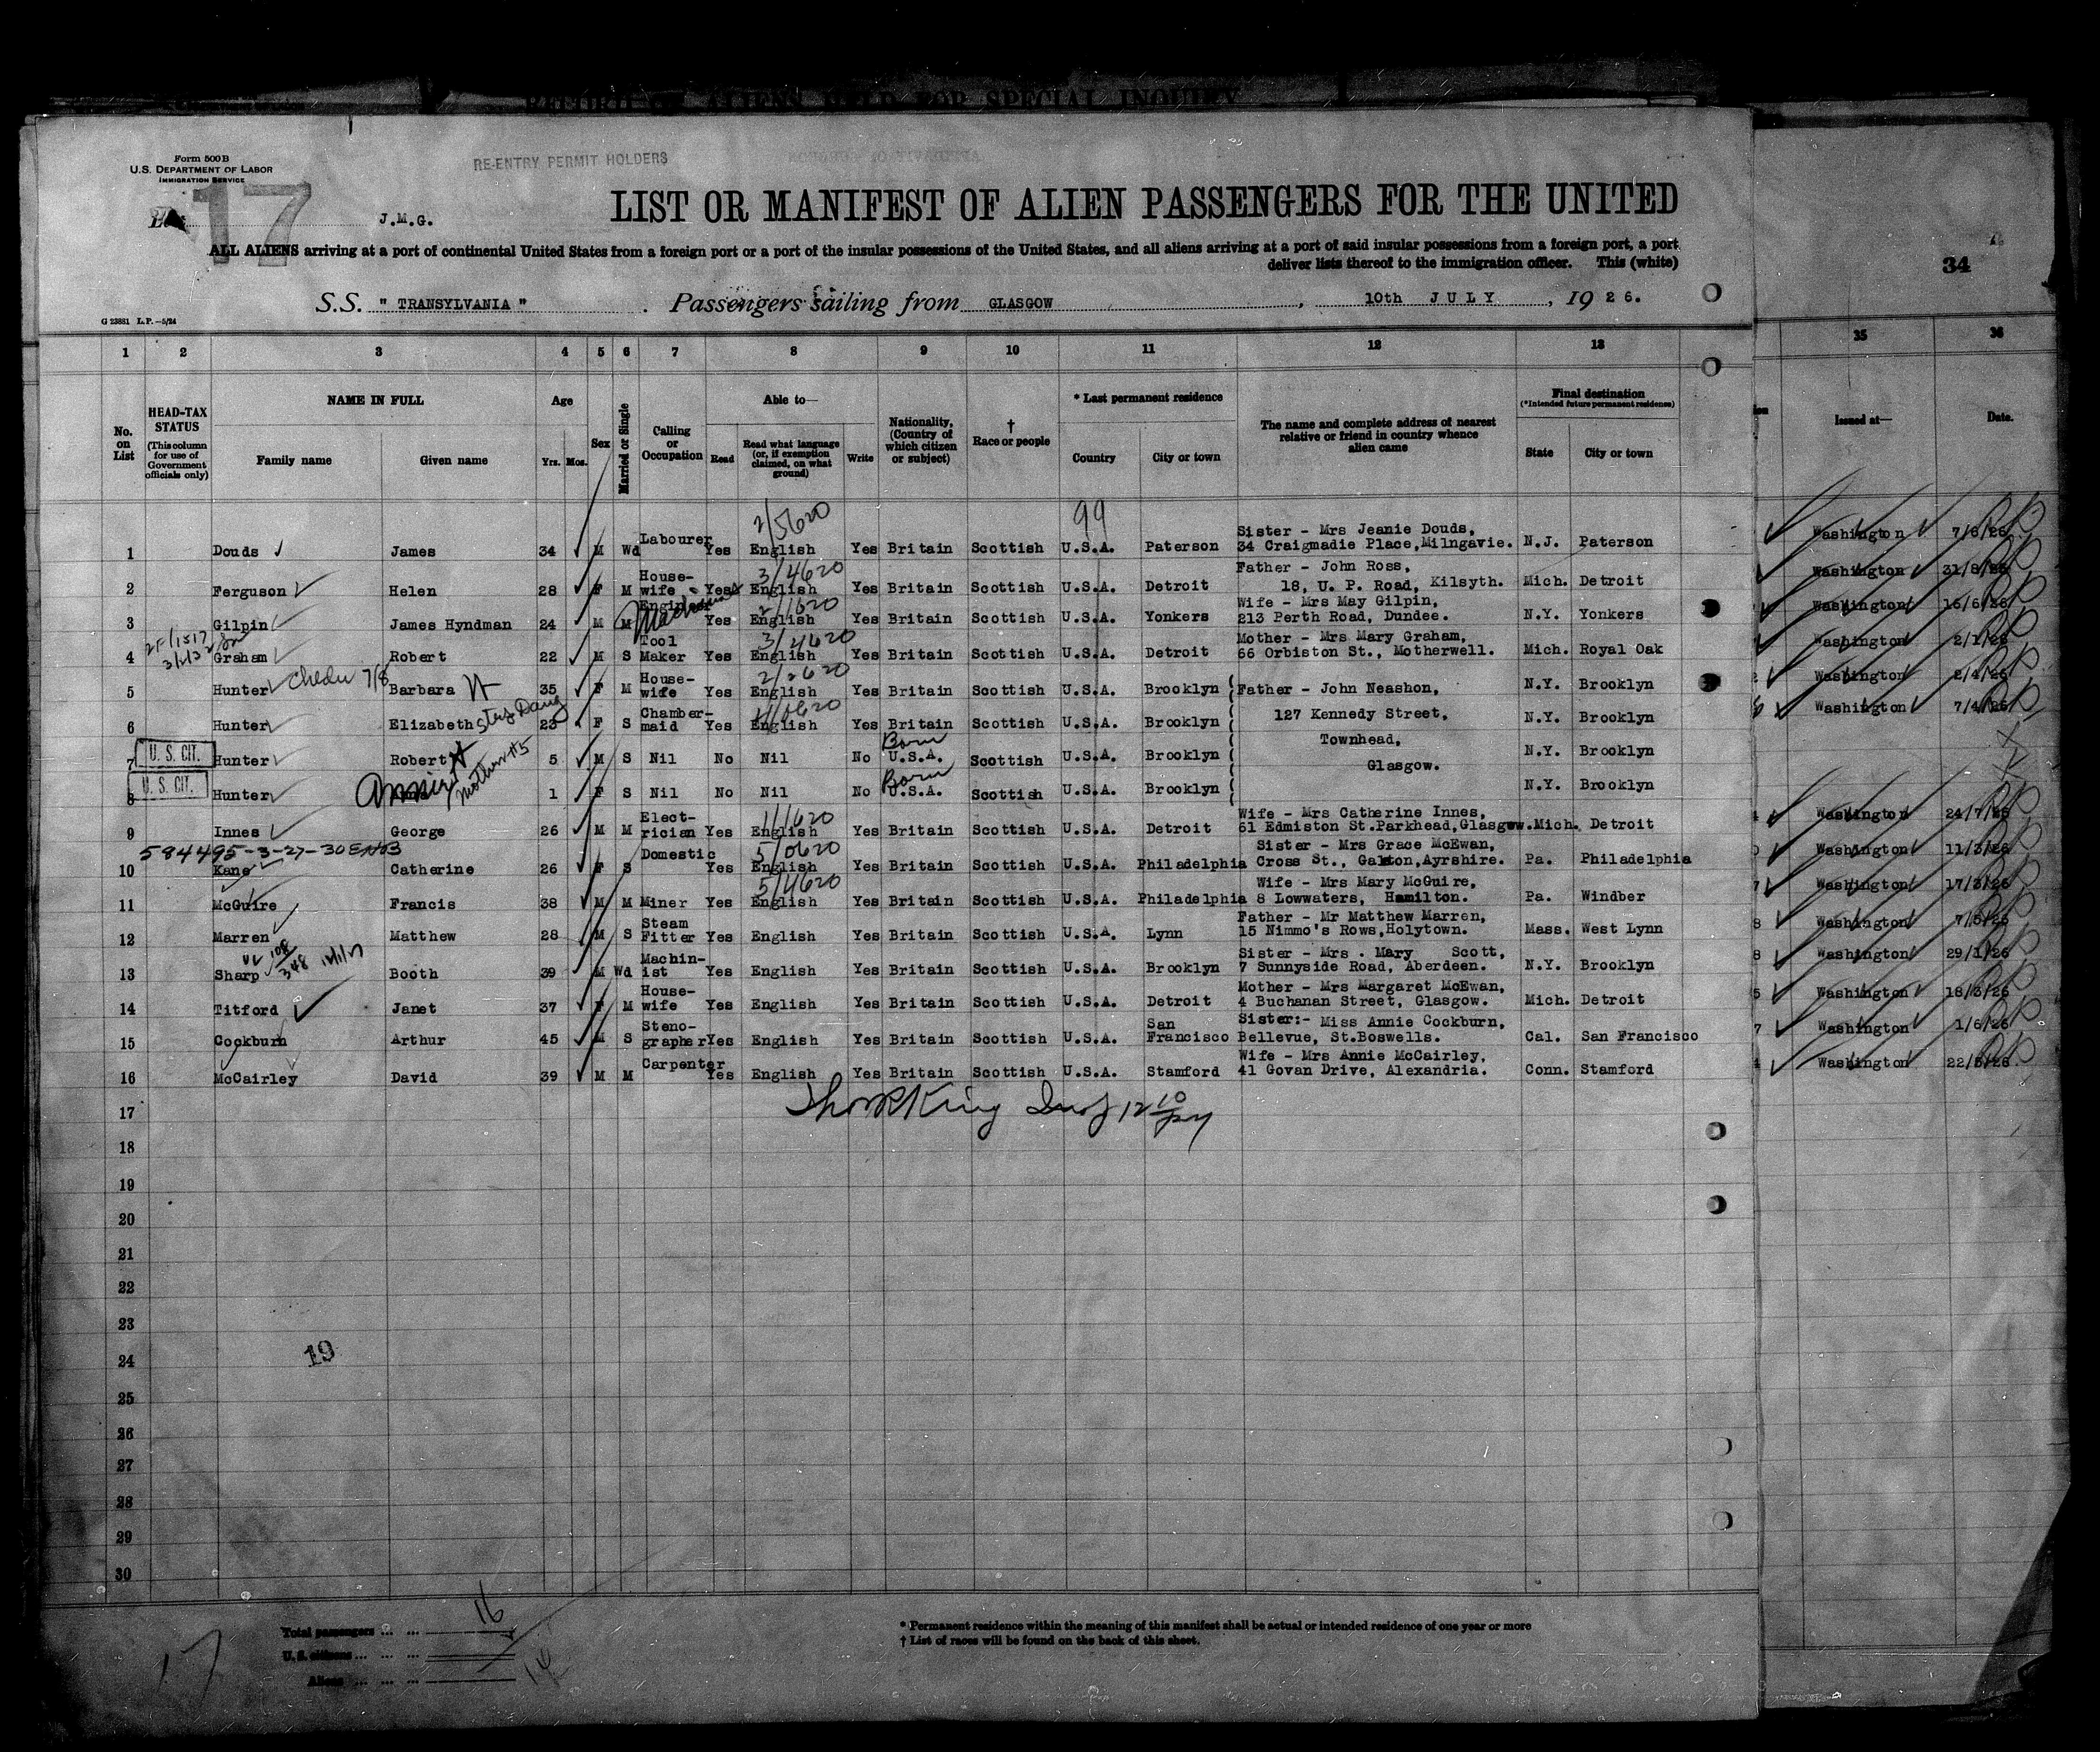 RETURN OF ALIENS HELD FOR SPECIAL INQUIRY
Form 500 B
U.S. DEPARTMENT OF LABOR
IMMIGRATION SERVICE
RE-ENTRY PERMIT HOLDERS
17
J.M.G.
LIST OR MANIFEST OF ALIEN PASSENGERS FOR THE UNITED
ALL ALIENS arriving at a port of continental United States from a foreign port or a port of the insular possessions of the United States, and all aliens arriving at a port of said insular possessions from a foreign port, a port
deliver lists thereof to the immigration officer. This (white)
34
S.S. " TRANSYLVANIA " . Passengers sailing from GLASGOW , 10th JULY , 19 26.
G 23881 L.P.—5/24
1 2 3 4 5 6 7 8 9 10 11 12 13 35 36
No. on List
HEAD-TAX STATUS (This column for use of Government officials only)
NAME IN FULL
Family name Given name
Age
Yrs. Mos.
Sex
Married or Single
Calling or Occupation
Able to—
Read
Read what language (or, if exemption claimed, on what ground)
Write
Nationality, (Country of which citizen or subject)
† Race or people
* Last permanent residence
Country City or town
The name and complete address of nearest relative or friend in country whence alien came
Final destination
(*Intended future permanent residence)
State City or town
Issued at—
Date.
2/5620 99
1 Douds James 34 M Wd Labourer Yes English Yes Britain Scottish U.S.A. Paterson Sister - Mrs Jeanie Douds, 34 Craigmadie Place, Milngavie. N.J. Paterson Washington 7/6/26
3/4620
2 Ferguson Helen 28 F M House-wife Yes English Yes Britain Scottish U.S.A. Detroit Father - John Ross, 18, U. P. Road, Kilsyth. Mich. Detroit Washington 31/8/25
2/1620
3 Gilpin James Hyndman 24 M M Engineer Machinist Yes English Yes Britain Scottish U.S.A. Yonkers Wife - Mrs May Gilpin, 213 Perth Road, Dundee. N.Y. Yonkers Washington 15/6/26
3/4620
4 Graham Robert 22 M S Tool Maker Yes English Yes Britain Scottish U.S.A. Detroit Mother - Mrs Mary Graham, 66 Orbiston St., Motherwell. Mich. Royal Oak Washington 2/1/26
5 Hunter Barbara 35 F M House-wife Yes English Yes Britain Scottish U.S.A. Brooklyn Father - John Neashon, N.Y. Brooklyn Washington 2/4/26
6 Hunter Elizabeth Step Daug 23 F S Chamber-maid Yes English Yes Britain Scottish U.S.A. Brooklyn 127 Kennedy Street, N.Y. Brooklyn Washington 7/4/26
U. S. CIT.
7 Hunter Robert 5 M S Nil No Nil No Born U.S.A. Scottish U.S.A. Brooklyn Townhead, N.Y. Brooklyn
U. S. CIT.
8 Hunter Annie mother #5 1 F S Nil No Nil No Born U.S.A. Scottish U.S.A. Brooklyn Glasgow. N.Y. Brooklyn
1/1620
9 Innes George 26 M M Elect-rician Yes English Yes Britain Scottish U.S.A. Detroit Wife - Mrs Catherine Innes, 61 Edmiston St. Parkhead, Glasgow. Mich. Detroit Washington 24/7/25
584495-3-27-30
5/0620
10 Kane Catherine 26 F S Domestic Yes English Yes Britain Scottish U.S.A. Philadelphia Sister - Mrs Grace McEwan, Cross St., Galston, Ayrshire. Pa. Philadelphia Washington 11/3/26
5/4620
11 McGuire Francis 38 M M Miner Yes English Yes Britain Scottish U.S.A. Philadelphia Wife - Mrs Mary McGuire, 8 Lowwaters, Hamilton. Pa. Windber Washington 17/3/26
12 Marren Matthew 28 M S Steam Fitter Yes English Yes Britain Scottish U.S.A. Lynn Father - Mr Matthew Marren, 15 Nimmo's Rows, Holytown. Mass. West Lynn Washington 7/5/26
13 Sharp Booth 39 M Wd Machin-ist Yes English Yes Britain Scottish U.S.A. Brooklyn Sister - Mrs . Mary Scott, 7 Sunnyside Road, Aberdeen. N.Y. Brooklyn Washington 29/1/26
14 Titford Janet 37 F M House-wife Yes English Yes Britain Scottish U.S.A. Detroit Mother - Mrs Margaret McEwan, 4 Buchanan Street, Glasgow. Mich. Detroit Washington 18/3/26
15 Cockburn Arthur 45 M S Steno-grapher Yes English Yes Britain Scottish U.S.A. San Francisco Sister:- Miss Annie Cockburn, Bellevue, St.Boswells. Cal. San Francisco Washington 1/6/26
16 McCairley David 39 M M Carpenter Yes English Yes Britain Scottish U.S.A. Stamford Wife - Mrs Annie McCairley, 41 Govan Drive, Alexandria. Conn. Stamford Washington 22/5/26
17
18
19
20
21
22
23
24
19
25
26
27
28
29
30
Total passengers ... ... 16
U. S. citizens ... ... ...
Aliens ... ... ... 14
17
* Permanent residence within the meaning of this manifest shall be actual or intended residence of one year or more
† List of races will be found on the back of this sheet.